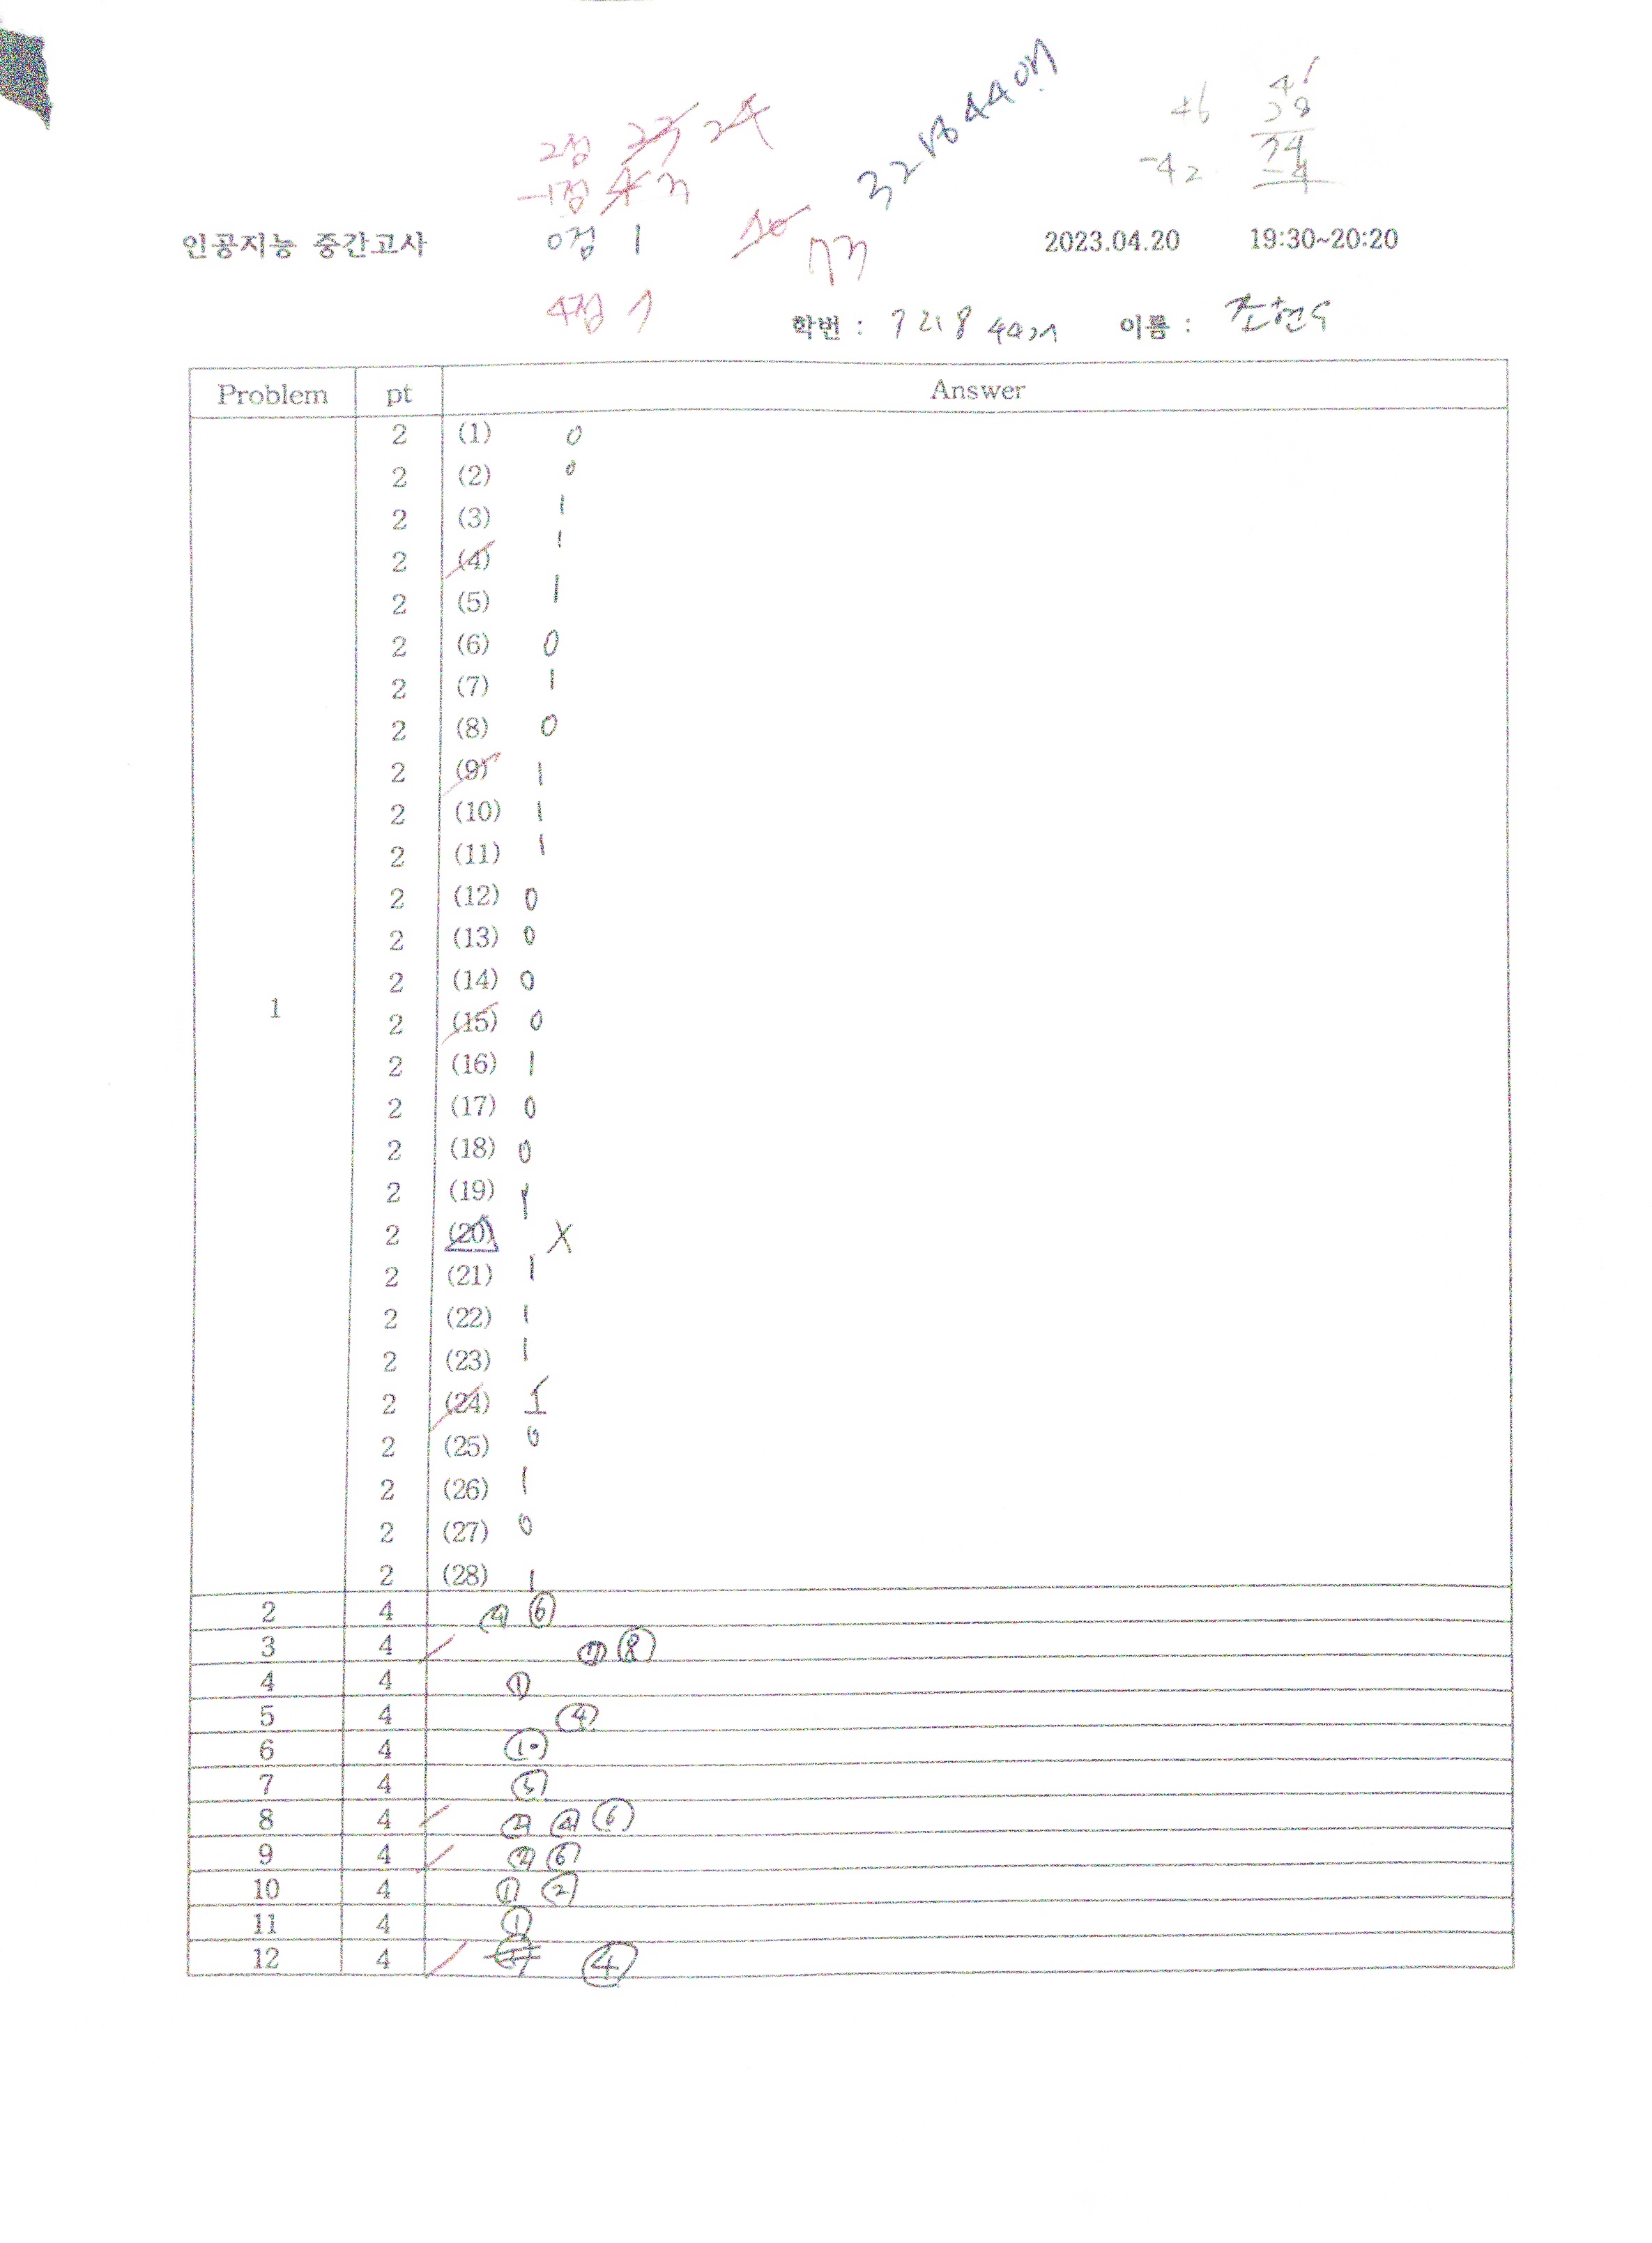 46 46
28
-42 74
-4
2점 23 24
-1점 4 3
인공지능 중간고사 0점 1 2023.04.20 19:30~20:20
73
4점 7
학번 : 이름 : 조현수
Problem pt Answer
2 (1) 0
2 (2) 0
2 (3) 1
2 (4) 1
2 (5) 1
2 (6) 0
2 (7) 1
2 (8) 0
2 (9) 1
2 (10) 1
2 (11) 1
2 (12) 0
2 (13) 0
2 (14) 0
1 2 (15) 0
2 (16) 1
2 (17) 0
2 (18) 0
2 (19) 1
2 (20) X
2 (21) 1
2 (22) 1
2 (23) 1
2 (24) 1
2 (25) 0
2 (26) 1
2 (27) 0
2 (28) 1
2 4 ④ ⑥
3 4 ⑦ ⑧
4 4 ①
5 4 ④
6 4 ⑩
7 4 ⑤
8 4 ② ④ ⑥
9 4 ② ⑥
10 4 ① ②
11 4 ①
12 4 ④